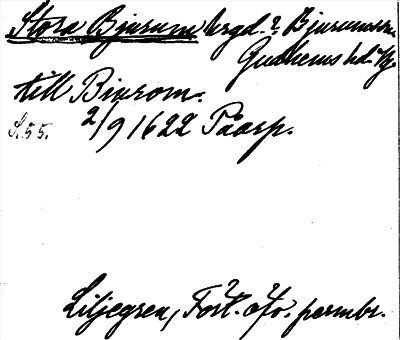 Stora Bjurum hrgd. i Bjurums sn.
Gudhems hd. Vg.
till Biurom.
S. 55. 2/9 1622 Påarp.
Liljegren, Fört. öfv. permbr.